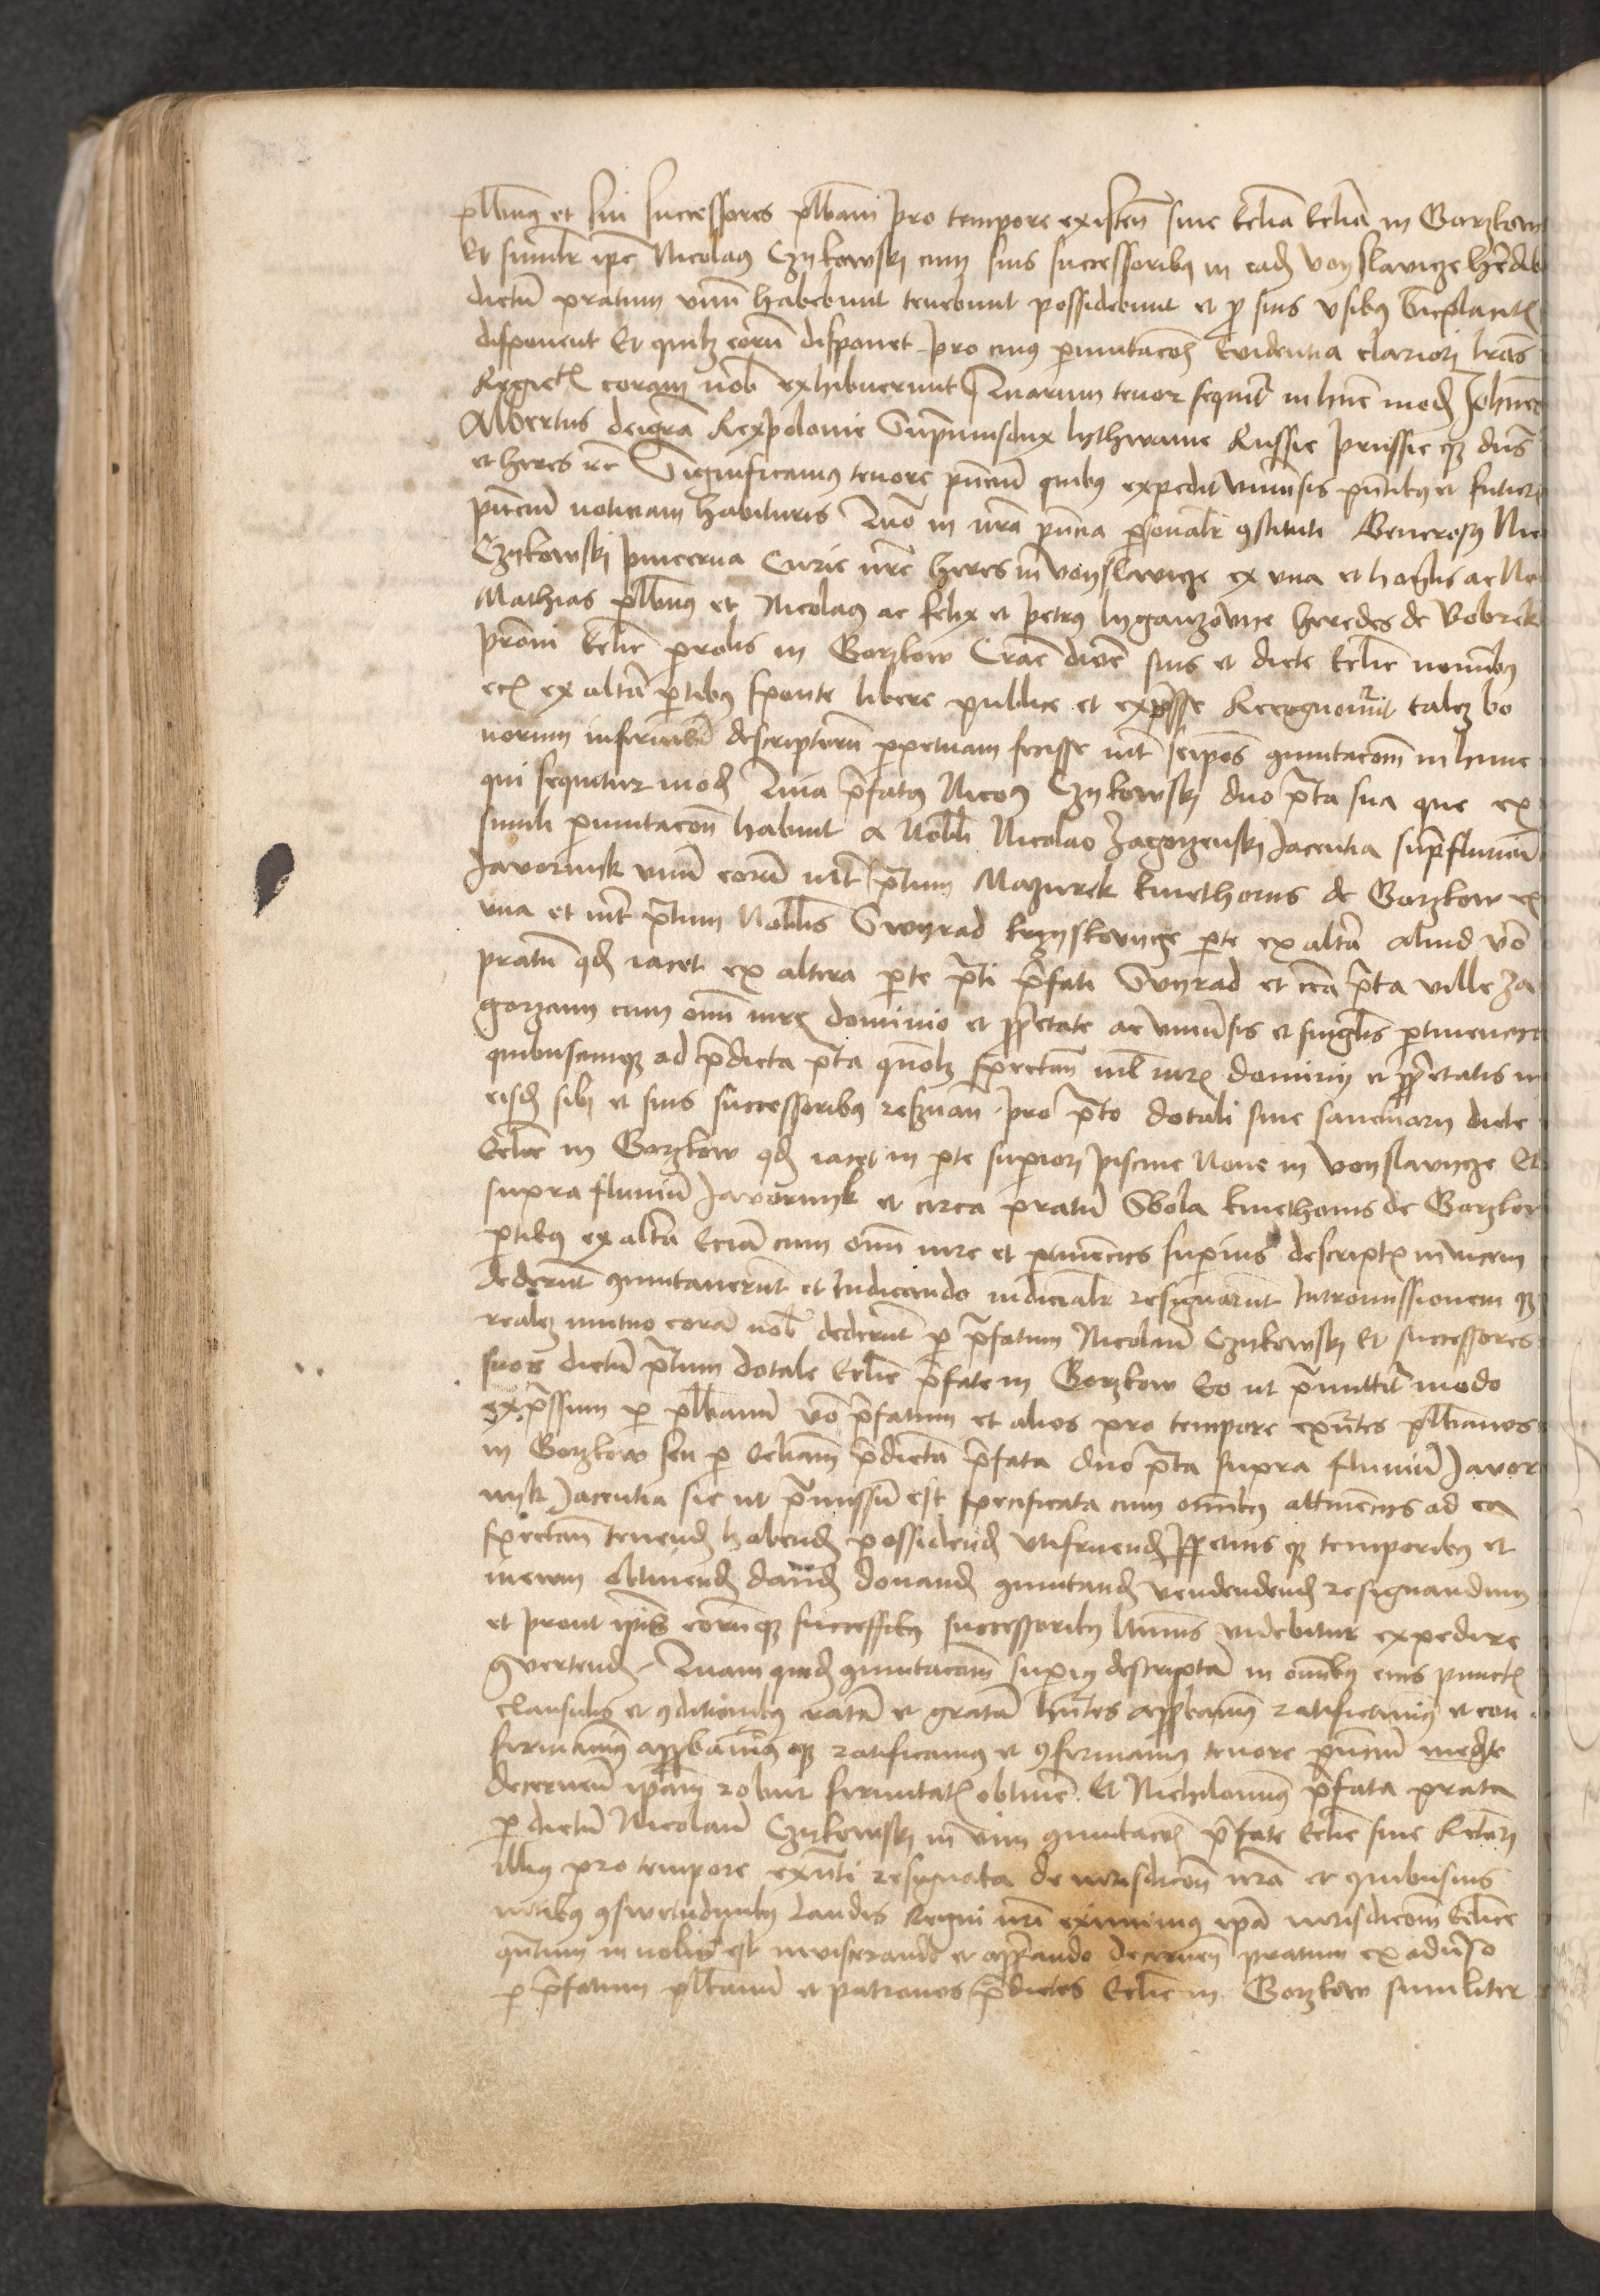 plbnus et sui successores plbani pro tempore existen siue eccliam eccliam in Gorzkow
Et similr ipe Nicolaus Czikowski cum suis successoribus in eadem Voyslavicze heredib
dictu pratum vnu habebunt tenebunt possidebunt et pro suis vsibus bnplacitis
disponent Et quilibet eoru disponet Pro cuius permutaconis Evidentia clariori lras
Regias coram nob exhibuerunt Quarum tenor sequitr in hunc modu Johnes
Albertus dei gra Rex polonie Supremus dux lythwanie Russie prussie que dns
et heres etc Significamus tenore pntium quibus expedit vniuersis pntibus et futuris
pntium noticiam habituris Quo in nra pntia psonalr constituti Generosus Nic
Czikowski pincerna Curie nre heres in Voyslavicze ex vna et honorabilis ac No
Mathias plbnus et Nicolaus ac felix et petrus lyganzowye heredes de Bobrek
prouni Ecclie prolis in Gorzkow Crac dioc suis et dicte Ecclie nominibus
ex altera partibus sponte libere publice et expresse Recognouerunt talem bo
norum inferius descriptoru perpetuam fecisse int seipos comutaconem in hunc
qui sequitur modu Quia prefatus Nicolaus Czikowski duo prata sua que ex
simili permutacone habuit a Nobili Nicolao Zagorzenski Jacentia supra fluuiu
Javornyk vnu eoru int pratum Mazurek kmethonis de Gorzkow ex
vna et int pratum Nobilis Swyrad krzyskovycze parte ex altera aliud vero
pratu quod iacet ex altera parte prati prefati Swyrad et circa prata ville Za
gorzany cum omni iure dominio et proprietate ac vniuersis et singulis pertinenciis
quibuscumque ad predicta prata quomodolibet spectan nil iuris dominii et proprietatis in
eisdem sibi et suis successoribus reseruan pro prato dotali siue sanctuarii dicte
Ecclie in Gorzkow quod iacet in parte superiori piscine Noue in Voyslavycze Et
supra fluuiu Javornyk et circa pratu Sbola kmethonis de Gorzkow
partibus ex altera Eciam cum omni iure et pertinenciis superius descriptis inuicem
dederunt comutauerunt et Iudicando iudicialr resignarunt Intromissionem que
realem mutuo cora nob dederunt per prefatum Nicolau Czikowski Et successores
suos dictu pratum dotale Ecclie prefate in Gorzkow Eo ut premittitr modo
expressum per plbanum vero prefatum et alios pro tempore existentes plbanos
in Gorzkow seu per eccliam predictam prefata duo prata supra fluuiu Javor
nyk Jacentia sic ut premissu est specificata cum omnibus attinenciis ad ea
spectan tenend habend possidend vtifruend perpetuis que temporibus et
in ewm obtinend dand donand comutand vendendend resignandum
et prout ipis eorumque successibus successoribus vtrinius videbitur expedire
conuertend Quam quidem comutaconem superius descripta in omnibus eius punctis
clausulis et conditionibus rata et grata habentes approbamus ratificamus et con
firmamus approbamus que ratificamus et confirmamus tenore pntium mediante
decernen ipam robur firmitatis obtinere Et Nichilominus prefata prata
per dictu Nicolau Czikowski in vim comutaconis prefate Ecclie siue Rectori
illius pro tempore existenti resignata de iurisdicone nra et quibusuis
iuribus consuetudinibus laudis Regni nri eximimus ipa iurisdiconi Ecclie
quantum in nobis est inviscerando et applicando decernen pratum ex aduerso
per prefatum plbanum et patronos predictos Ecclie in Gorzkow similiter